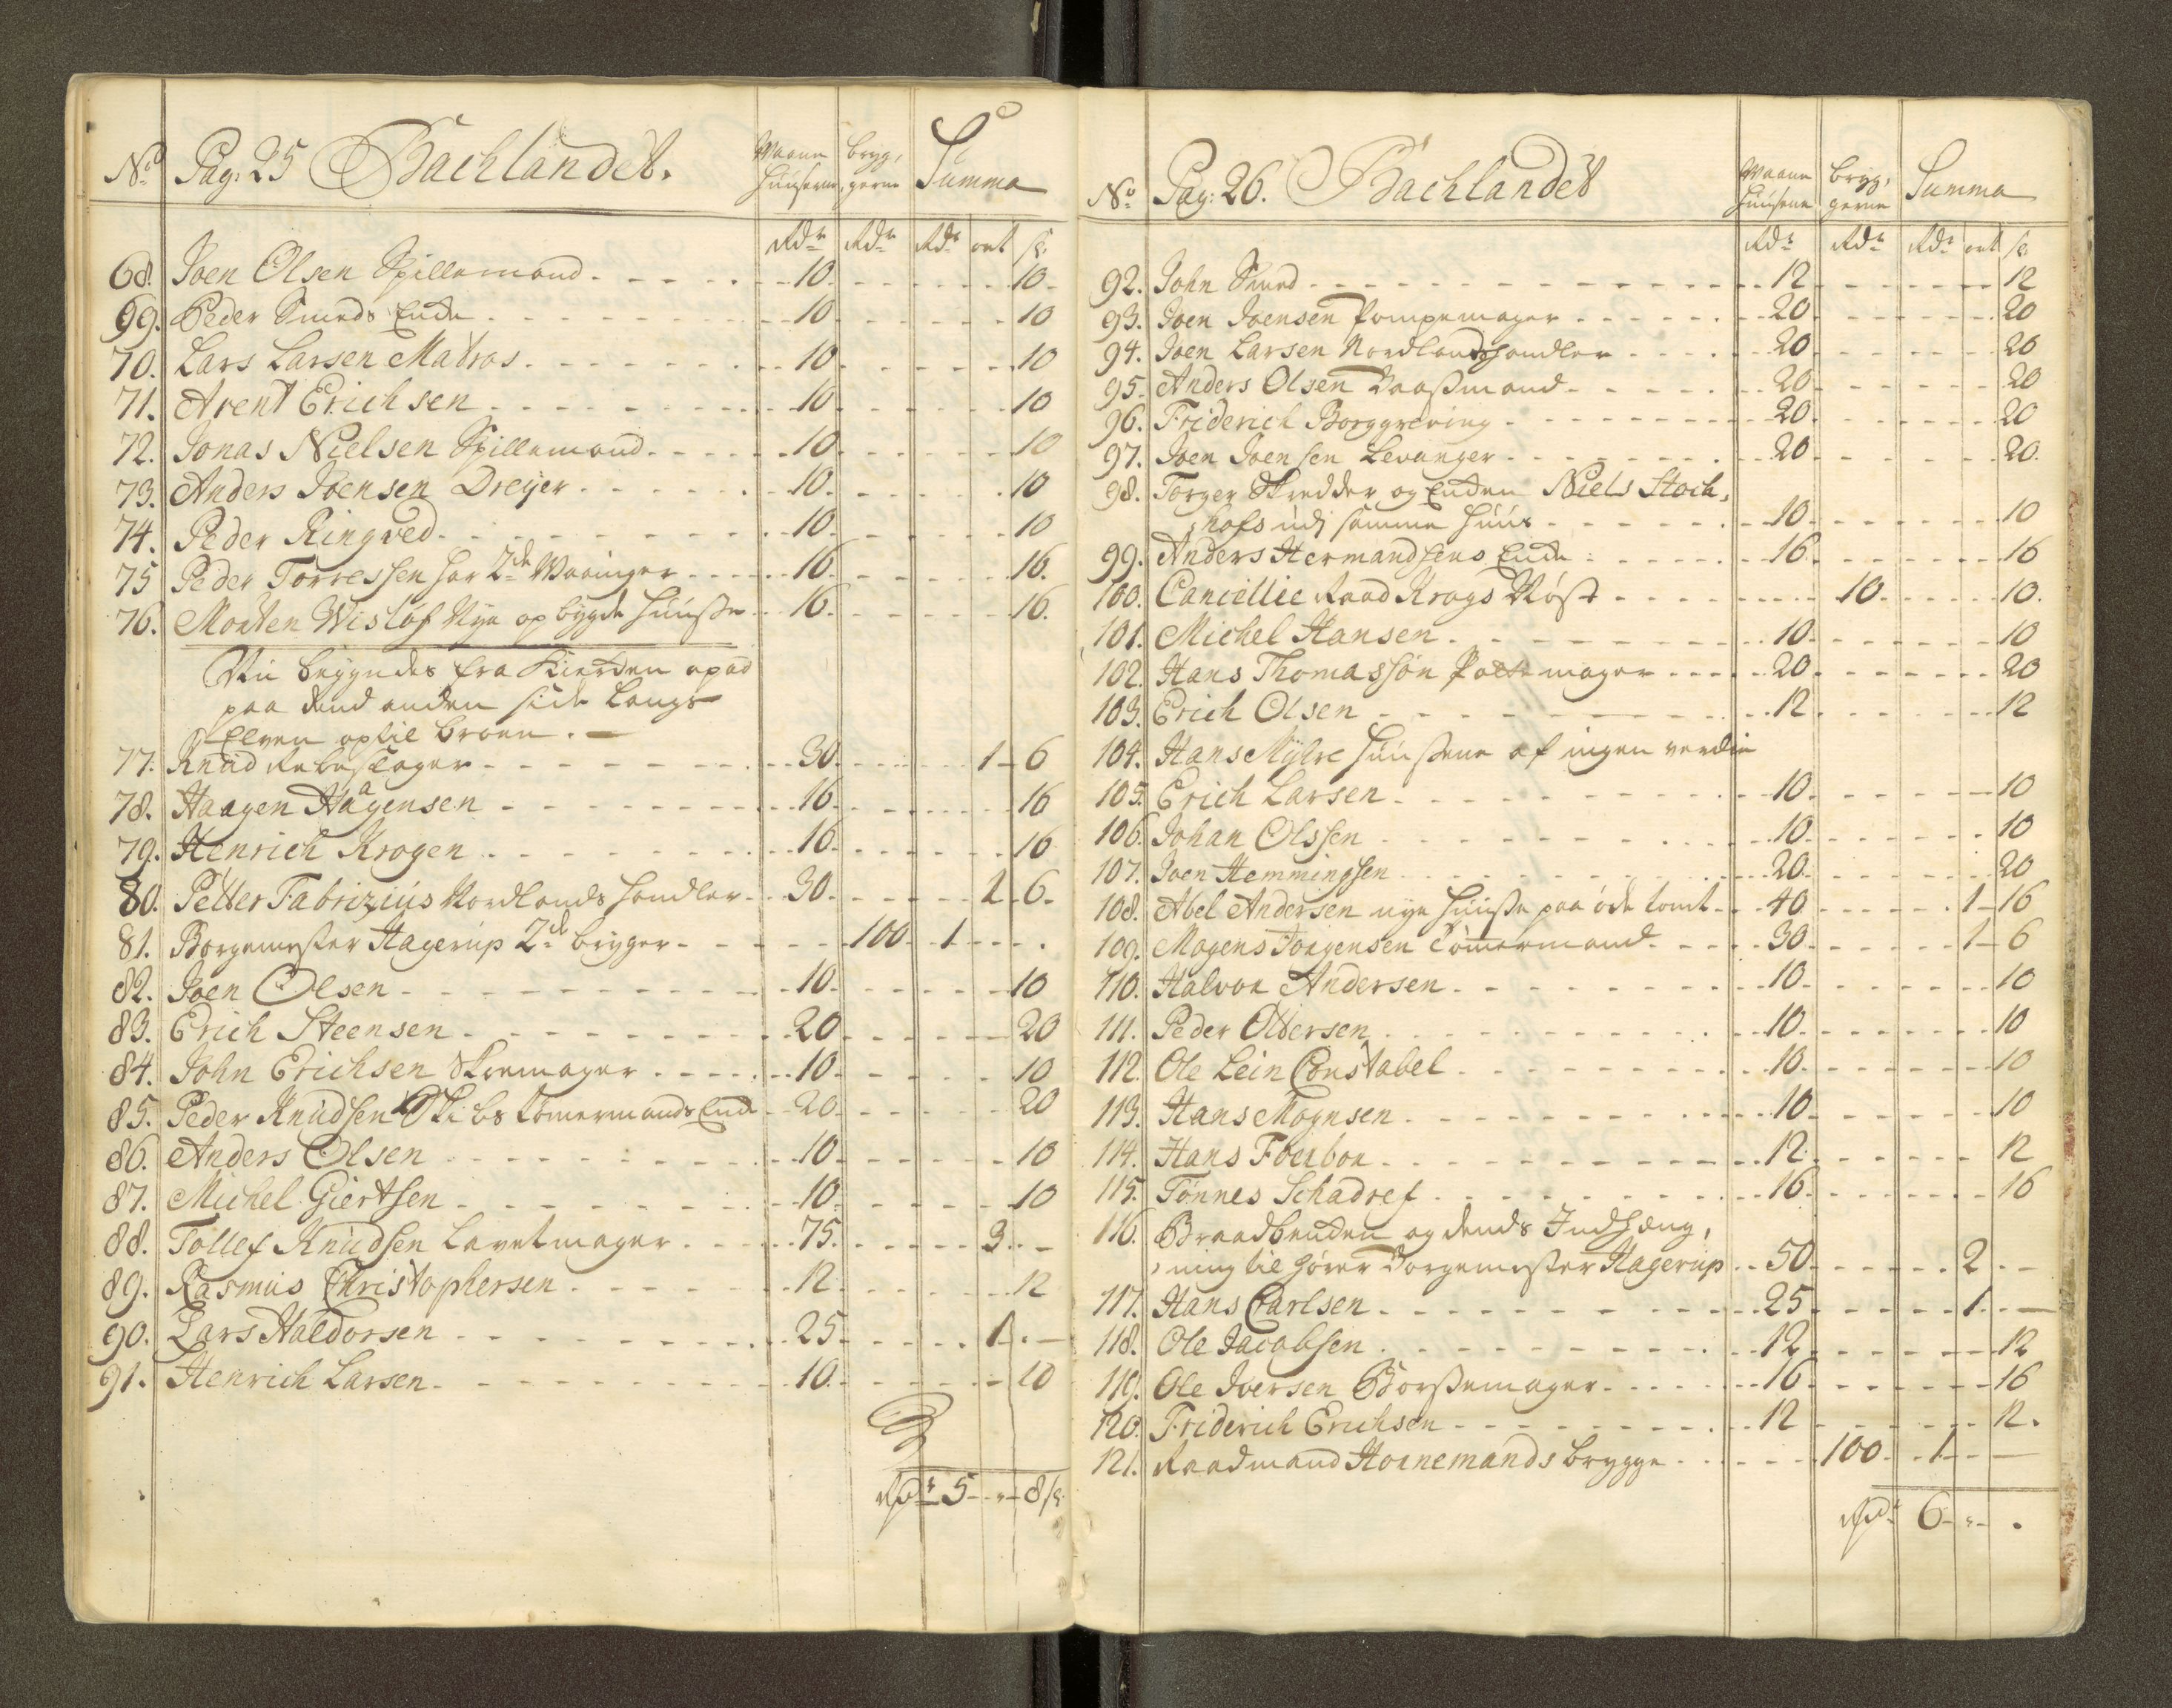 No Pag: 25 Bachlandet. Waane Huuserne, Bryggerne Summa
Rdr Rdr Rdr ort s:
68. Joen Olsen Spillemand 10 10
69. Peder Smeds Encke 10 10
70. Lars Larsen Matros 10 10
71. Arent Erichsen 10 10
72. Jonas Nielsen Spillemand 10 10
73. Anders Joensen Dreyer 10 10
74. Peder Ringved 10 10
75 Peder Torressen har 2de Waaninger 16 16.
76. Morten Wisløf Nye opbygde Huuse 16 16.
Nu begyndes fra Kierken opad
paa dend anden side langs
Elven optil broen.
77. Knud Rebeslager 30 1 6
78. Haagen Haagensen 16 16
79. Henrich Krogen 16 16
80. Petter Fabrizius Nordlands handler 30 1 6
81. Borgemester Hagerup 2de brygger 100 1
82. Joen Olsen 10 10
83. Erich Steensen 20 20
84. John Erichsen Skoemager 10 10
85. Peder Knudsen Skibs tømermands Enck 20 20
86. Anders Olsen 10 10
87. Michel Giertsen 10 10
88. Tollef Knudsen Lavetmager 75. 3
89. Rasmus Christophersen 12 12
90. Lars Haldorsen 25 1
91. Henrich Larsen 10 10
Rdr 5 8 s:
No Pag: 26. Bachlandet Waane Huusene Bryggerne Summa
Rdr Rdr Rdr ort s:
92. John Smed 12 12
93. Joen Joensen Pompemager 20 20
94. Joen Larsen Nordlandshandler 20 20
95. Anders Olsen Baadsmand 20 20
96. Friderich Borggreving 20 20
97. Joen Joensen Levanger 20 20.
98. Torger Skredder og Encken Niels Stock,
hofs udj samme Huus 10 10
99. Anders Hermandsens Encke 16 16
100. Cancellie Raad Krogs Nøst 10 10.
101. Michel Hansen 10 10
102. Hans Thomassøn Pottemager 20 20
103. Erich Olsen 12 12
104. Hans Myhre Huusene af ingen verdie
105. Erich Larsen 10 10
106. Johan Olssen 10 10
107. Joen Hemmingsen 20 20
108. Abel Andersen nye Huuse paa øde tomt 40 1 16
109. Mogens Jørgensen Tømermand 30 1 6
110. Halvor Andersen 10 10
111. Peder Ottersen 10 10
112. Ole Lein Constabel 10 10
113. Hans Mognsen 10 10
114. Hans Foerbor 12 12
115. Tønnes Schadref 16 16
116. Braadbencken og dends Indheng,
ning tilhører Borgemester Hagerup 50 2
117. Hans Carlsen 25 1
118. Ole Jacobsen 12 12
119. Ole Iversen Børstemager 16 16
120. Friderich Erichsen 12 12.
121. Raadmand Hornemands brygge 100 1
Rdr 6